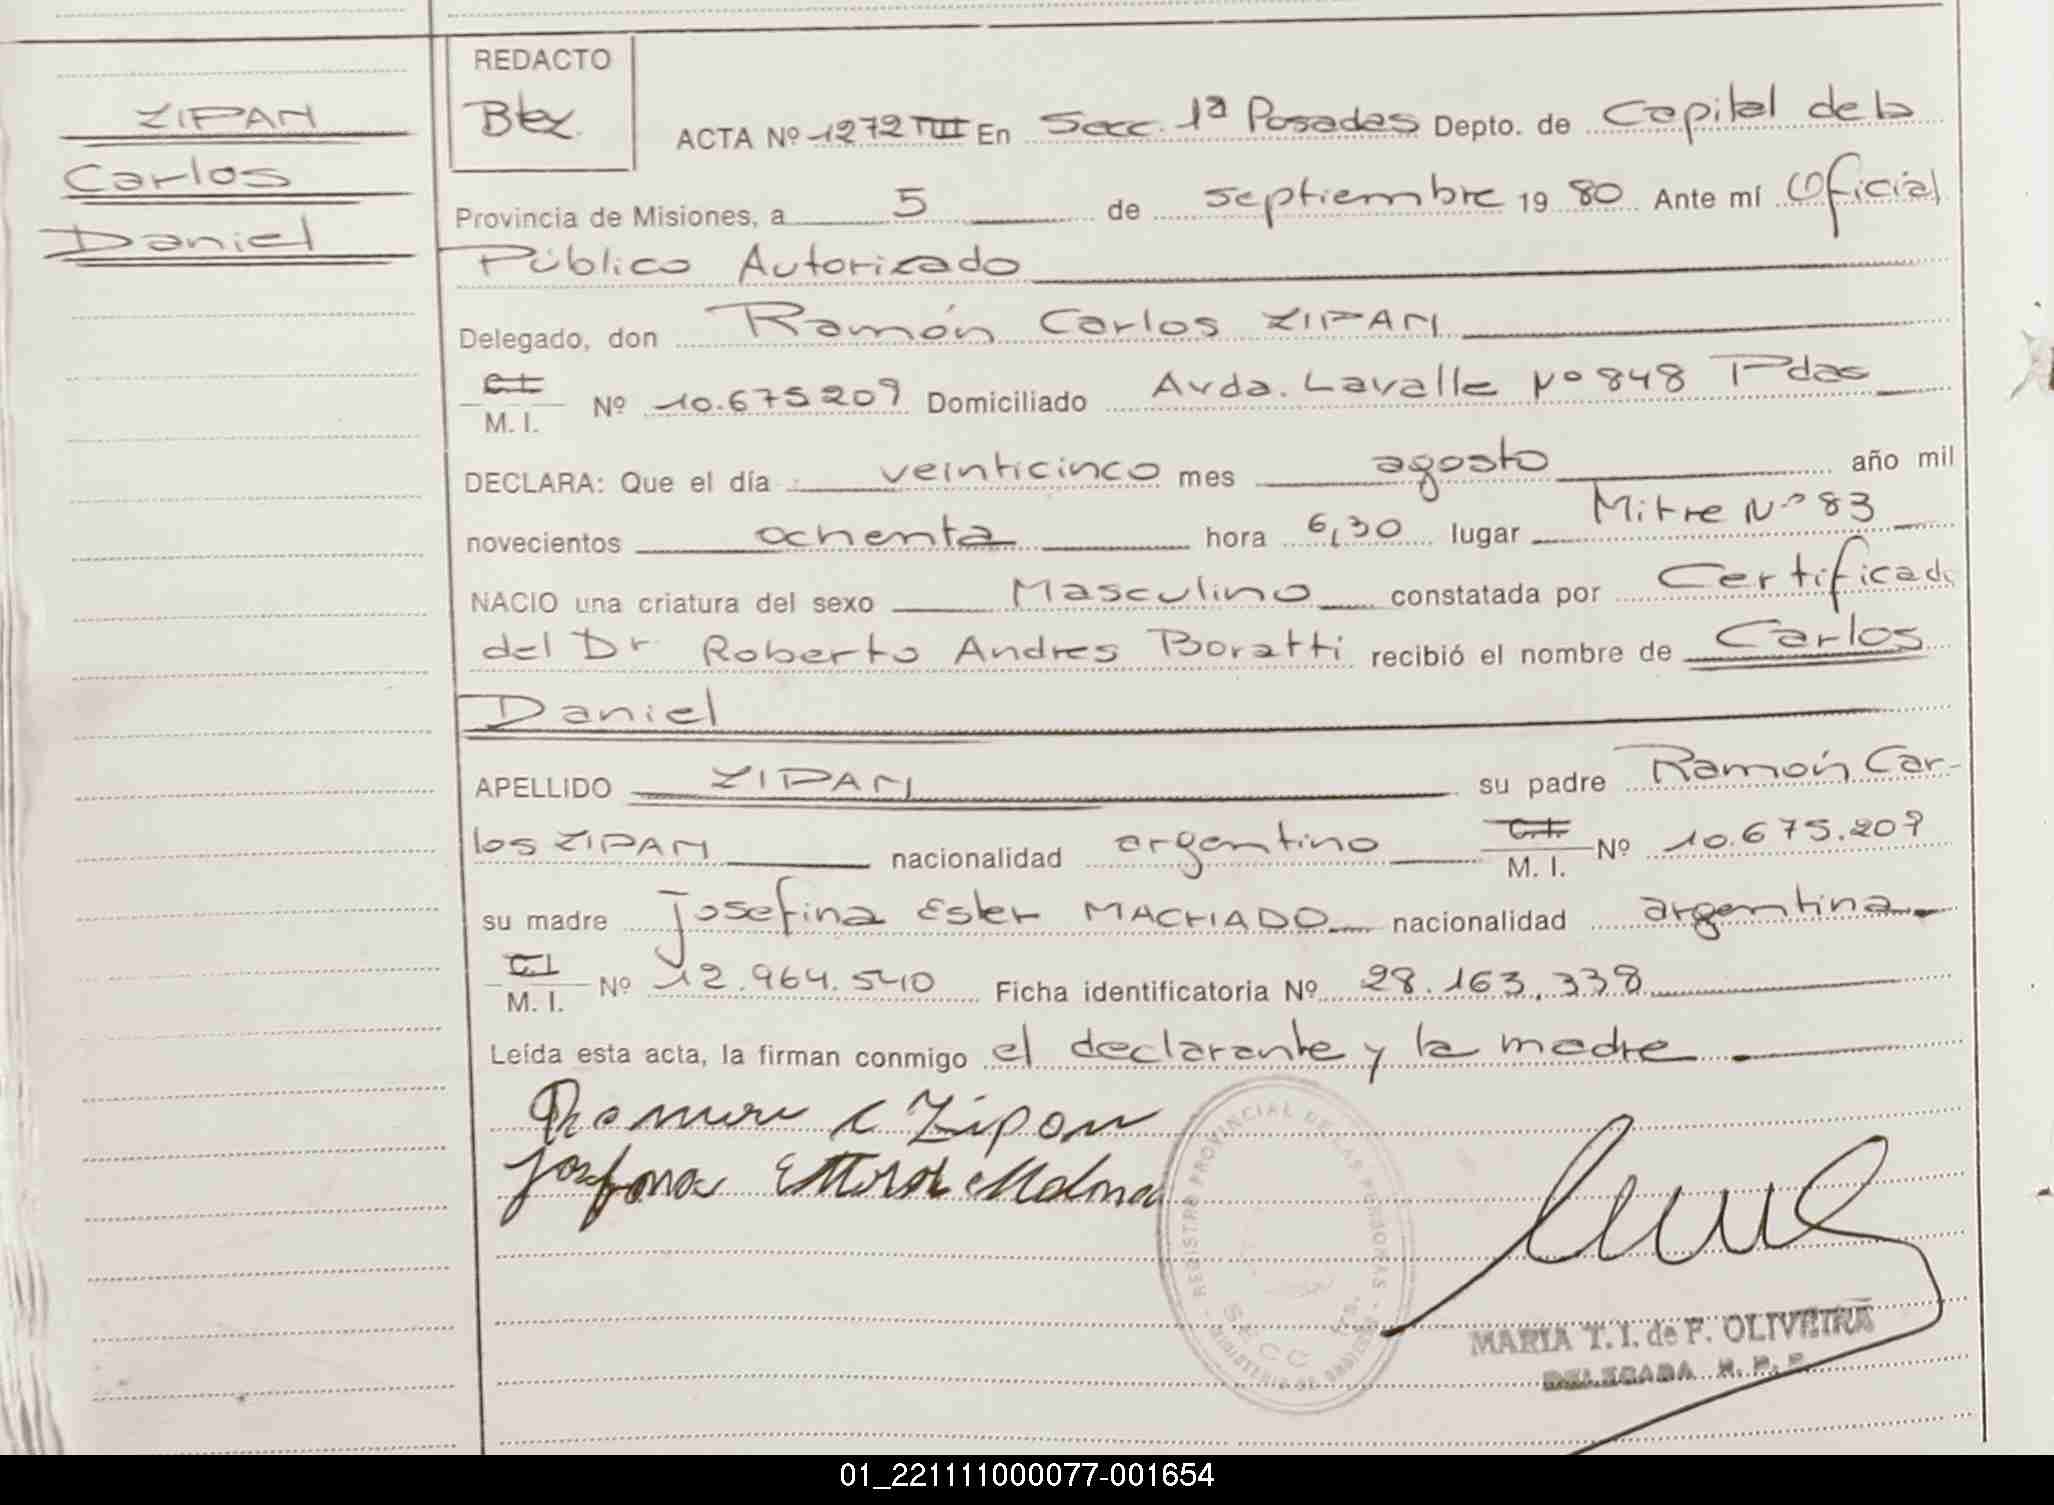 ZIPAN
Carlos
Daniel
REDACTO
ACTA Nº 1272 TIII En Secc. 1ª Posadas Depto. de Capital de la
Provincia de Misiones, a 5 de septiembre 19 80 Ante mí Oficial
Público Autorizado
Delegado, don Ramón Carlos ZIPAN
C.I.
M. I. Nº 10.675209 Domiciliado Avda. Lavalle Nº 848 Pdas
DECLARA: Que el día veinticinco mes agosto año mil
novecientos ochenta hora 6,30 lugar Mitre Nº 83
NACIO una criatura del sexo Masculino constatada por Certificado
del Dr Roberto Andres Boratti recibió el nombre de Carlos
Daniel
APELLIDO ZIPAN su padre Ramón Car-
los ZIPAN nacionalidad argentino C.I. M. I. Nº 10.675.209
su madre Josefina Ester MACHADO nacionalidad argentina
C.I
M. I. Nº 12.964.540 Ficha identificatoria Nº 28.163.338
Leída esta acta, la firman conmigo el declarante y la madre
Ramon C Zipan
REGISTRO PROVINCIAL DE LAS PERSONAS
SECC
MARIA T. I. de F. OLIVEIRA
DELEGADA R. P. P.
01_221111000077-001654